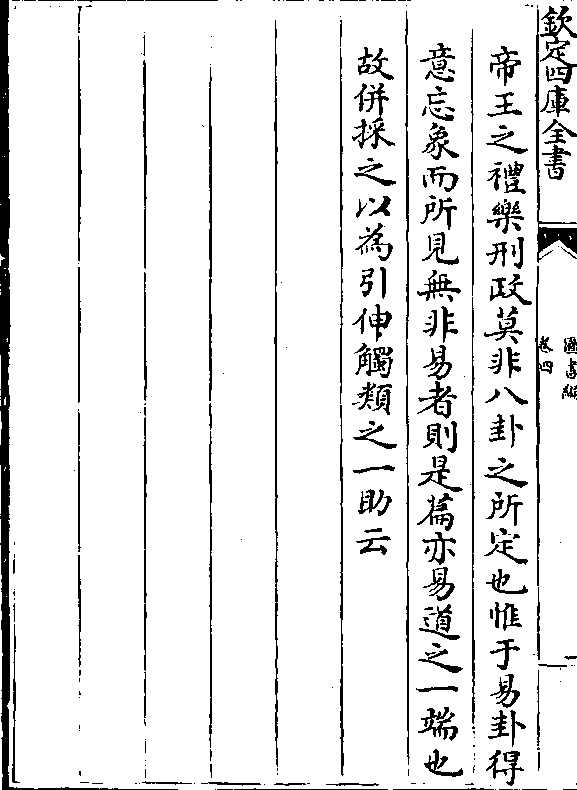 欽定四庫全書
圖書編
卷四
帝王之禮樂刑政莫非八卦之所定也惟于易卦得
意忘象而所見無非易者則是篇亦易道之一端也
故併採之以為引伸觸類之一助云